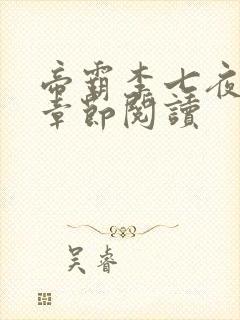 帝霸李七夜
章節閱讀
吴睿